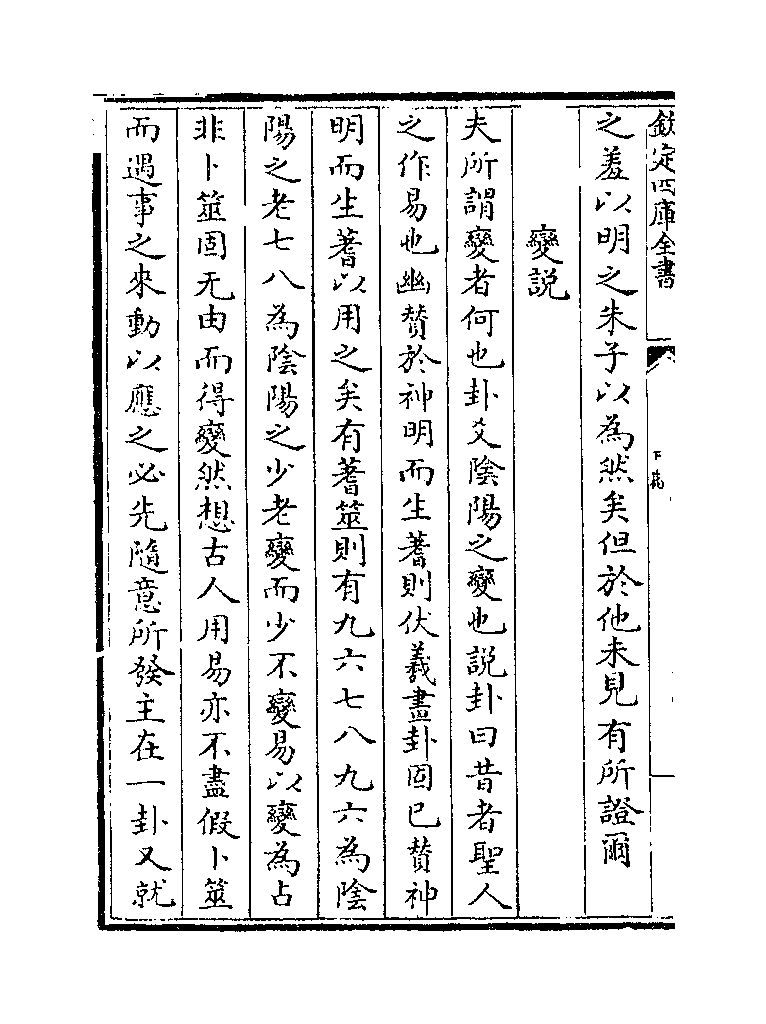 欽定四庫全書
下篇
之羞以明之朱子以為然矣但於他未見有所證爾
變説
夫所謂變者何也卦爻陰陽之變也説卦曰昔者聖人
之作易也幽賛於神明而生蓍則伏羲畫卦固已賛神
明而生蓍以用之矣有蓍筮則有九六七八九六為陰
陽之老七八為陰陽之少老變而少不變易以變為占
非卜筮固无由而得變然想古人用易亦不盡假卜筮
而遇事之來動以應之必先隨意所發主在一卦又就